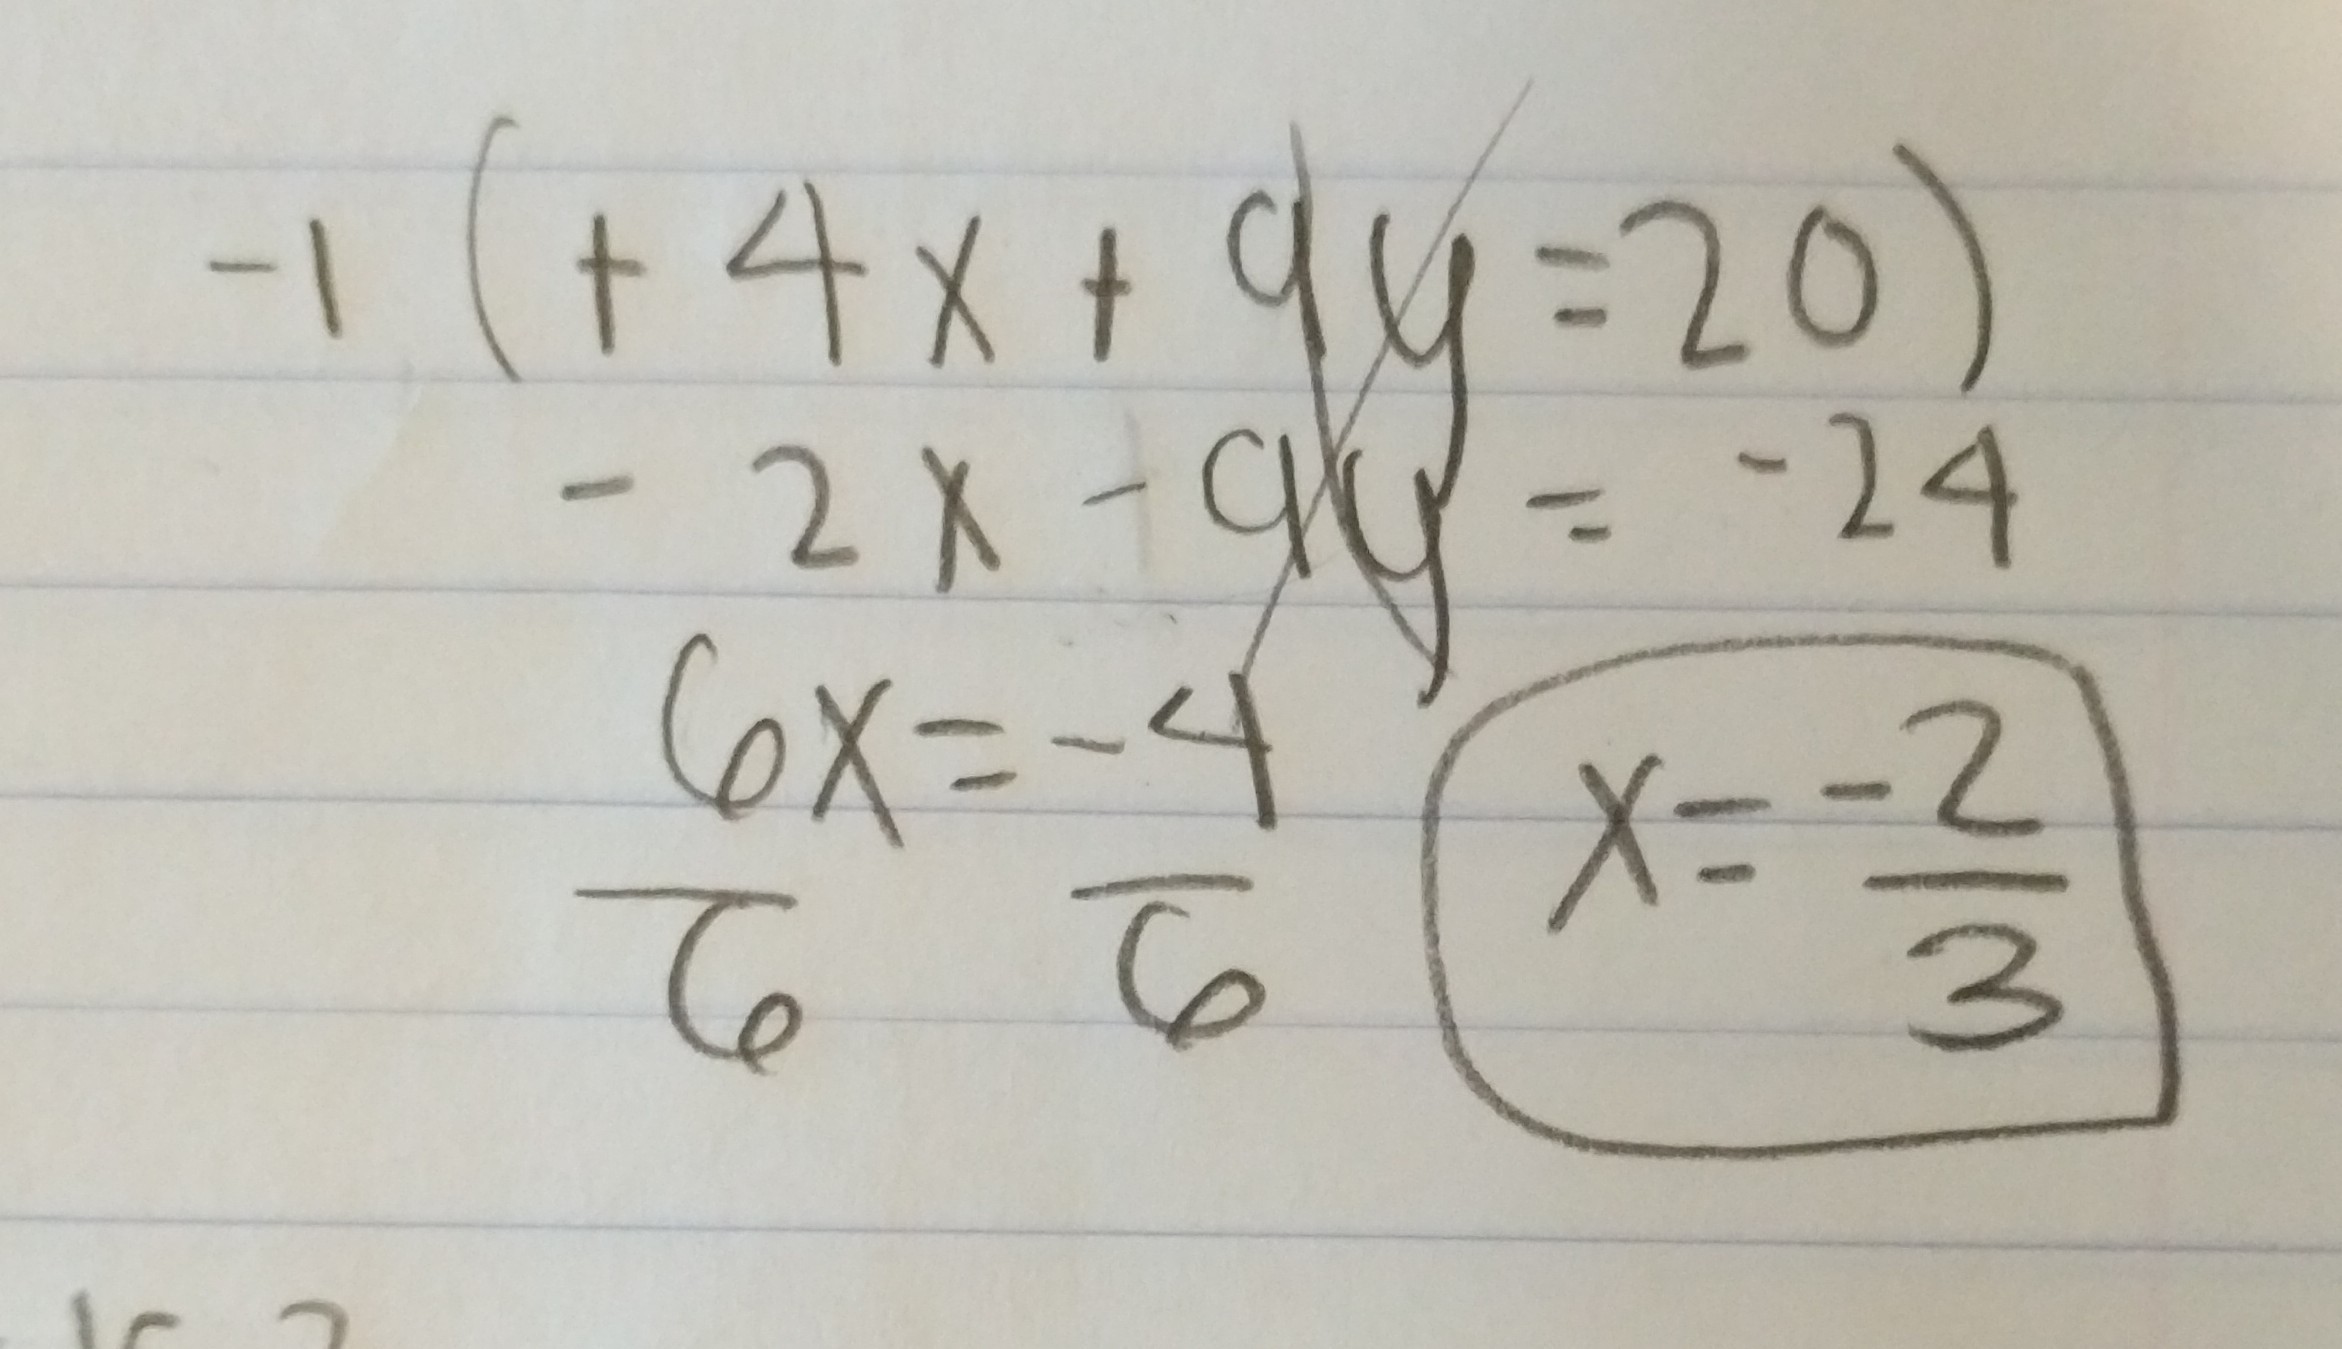 -1 (+ 4x + 9y = 20)
- 2x - 9y = -24
6x = -4
6 6
x = -2/3